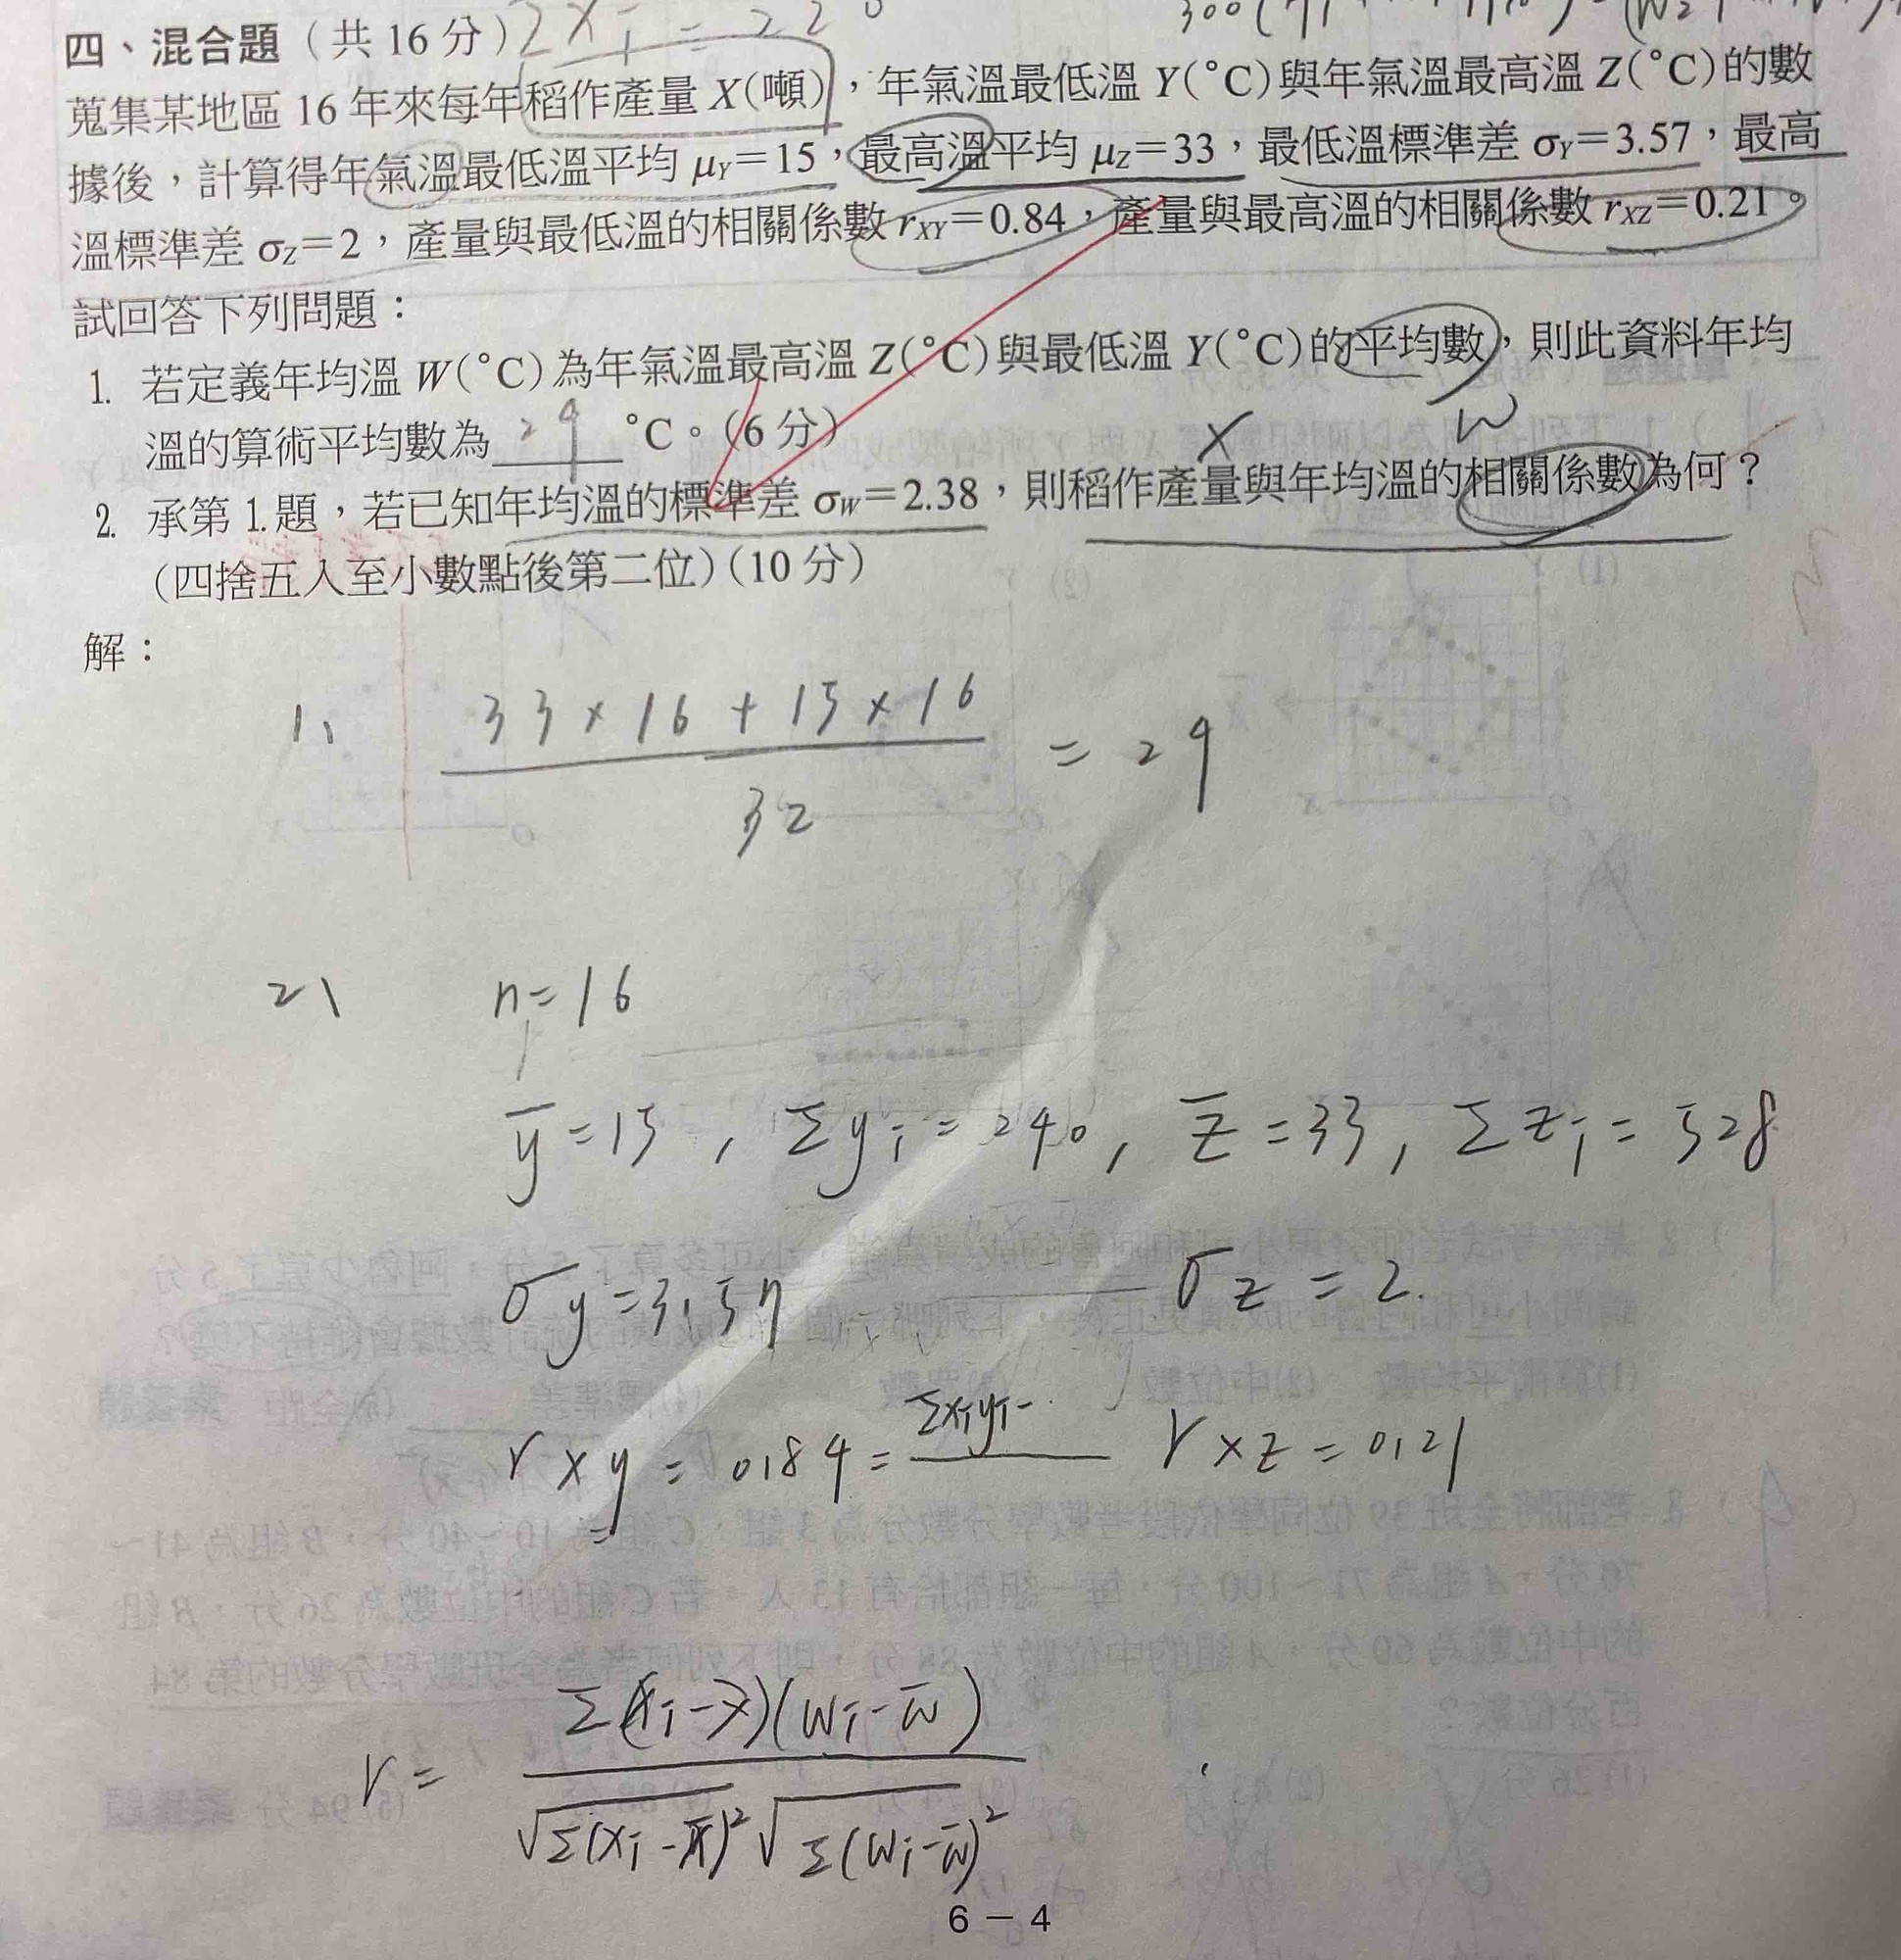 2x_i = 22
四、混合題（共 16 分）
蒐集某地區 16 年來每年稻作產量 X(噸)，年氣溫最低溫 Y(°C)與年氣溫最高溫 Z(°C)的數
據後，計算得年氣溫最低溫平均 μ_Y=15，最高溫平均 μ_Z=33，最低溫標準差 σ_Y=3.57，最高
溫標準差 σ_Z=2，產量與最低溫的相關係數 r_XY=0.84，產量與最高溫的相關係數 r_XZ=0.21。
試回答下列問題：
1. 若定義年均溫 W(°C)為年氣溫最高溫 Z(°C)與最低溫 Y(°C)的平均數，則此資料年均
溫的算術平均數為 24 °C。(6 分)
X W
2. 承第 1.題，若已知年均溫的標準差 σ_W=2.38，則稻作產量與年均溫的相關係數為何？
（四捨五入至小數點後第二位）（10 分）
解：
1、 (33×16+15×16)/32 = 24
2、 n=16
ȳ=15, Σy_i=240, z̄=33, Σz_i=528
σy=3.57 σz=2.
rxy=0.84=Σx_iy_i- rxz=0.21
r= Σ(x_i-x̄)(w_i-w̄) / √Σ(x_i-x̄)² √Σ(w_i-w̄)²
6－4